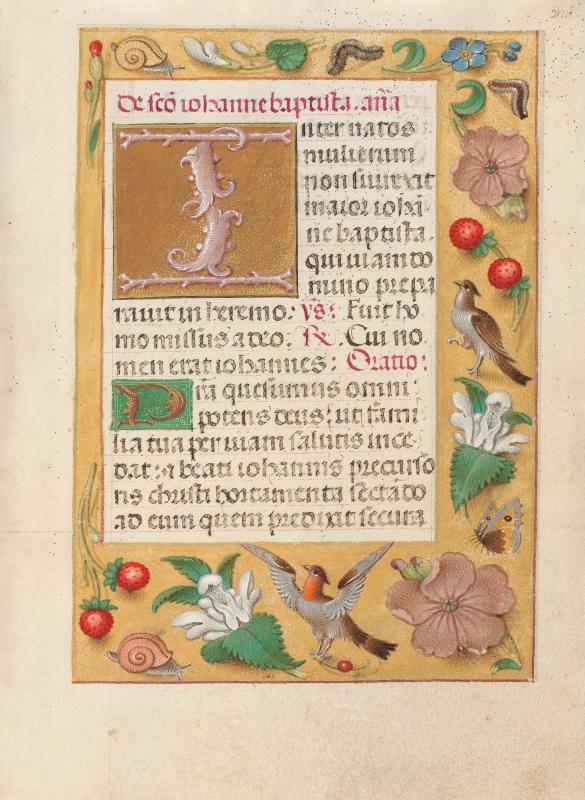 De scō iohanne baptista. añā
Inter natos
mulierum
non surrexit
maior iohā
ne baptista.
qui uiam do
mino prepa
rauit in heremo. v̄s: Fuit ho
mo missus a deo. R̄ Cui no
men erat iohannes: Oratio:
Presta quesumus omni
potens deus: ut fami
lia tua per uiam salutis ince
dat: & beati iohannis precurso
ris christi hortamenta sectādo
ad eum quem predixit secura